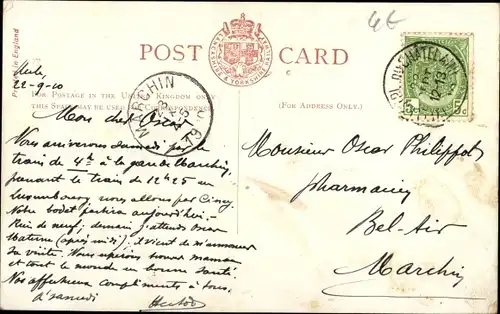 4E
Printed in England
POST CARD
LANCASHIRE & YORKSHIRE RAILWAY
22-9-10
FOR POSTAGE IN THE UNITED KINGDOM ONLY
THIS SPACE MAY BE USED FOR CORRESPONDENCE
(FOR ADDRESS ONLY.)
MARCHIN
Mon cher Oscar
Nous arriverons samedi par le
train de 4h à la gare de Marchin,
prenant le train de 12h25 en
Luxembourg, nous allons par Ciney.
Notre bodet partira aujourd'hui.
Rien de neuf; demain j'attends Oscar
Materne (après midi), il vient de m'annoncer
sa visite. Nous espérons trouver maman
et tout le monde en bonne santé.
Nos affectueux compliments à tous.
à samedi
Monsieur Oscar Philippot
pharmacien
Bel-Air
Marchin